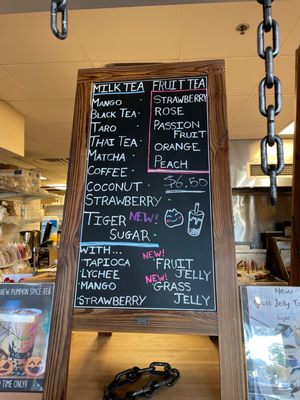 MILK TEA
MANGO
BLACK TEA
TARO
THAI TEA
MATCHA
COFFEE
COCONUT
STRAWBERRY
TIGER NEW!
SUGAR
FRUIT TEA
STRAWBERRY
ROSE
PASSION
FRUIT
ORANGE
PEACH
$6.50
WITH...
TAPIOCA
LYCHEE
MANGO
STRAWBERRY
NEW!
FRUIT
JELLY
NEW!
GRASS
JELLY
NEW PUMPKIN SPICE TEA
TIME ONLY!
New
Grass Jelly
Topping